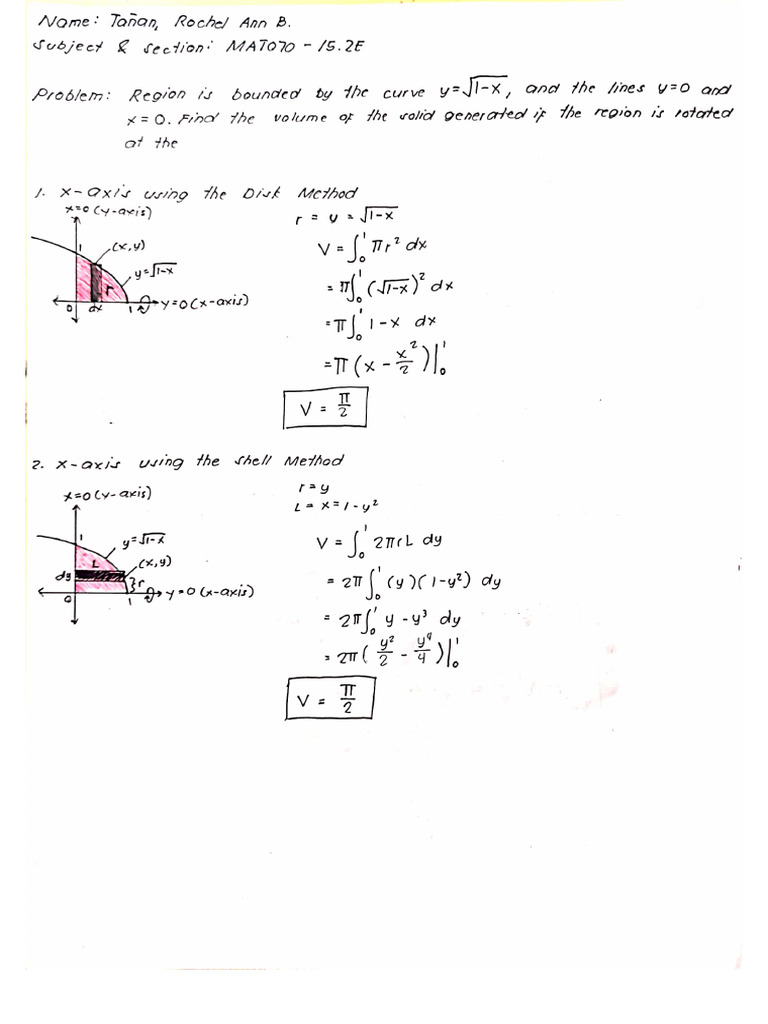 Name: Tañan, Rochel Ann B.
Subject & Section: MAT070 - 15.2E
Problem: Region is bounded by the curve y=√1-x, and the lines y=0 and
x=0. Find the volume of the solid generated if the region is rotated
at the
1. x-axis using the Disk Method
x=0 (y-axis)
1
(x,y)
y=√1-x
r
0
dx
1
y=0 (x-axis)
r = y = √1-x
V = ∫₀¹ πr² dx
= π∫₀¹ (√1-x)² dx
= π∫₀¹ 1-x dx
= π (x - x²/2)|₀¹
V = π/2
2. x-axis using the Shell Method
x=0 (y-axis)
1
y=√1-x
L
(x,y)
dy
r
0
1
y=0 (x-axis)
r = y
L = x = 1-y²
V = ∫₀¹ 2πrL dy
= 2π∫₀¹ (y)(1-y²) dy
= 2π∫₀¹ y - y³ dy
= 2π (y²/2 - y⁴/4)|₀¹
V = π/2